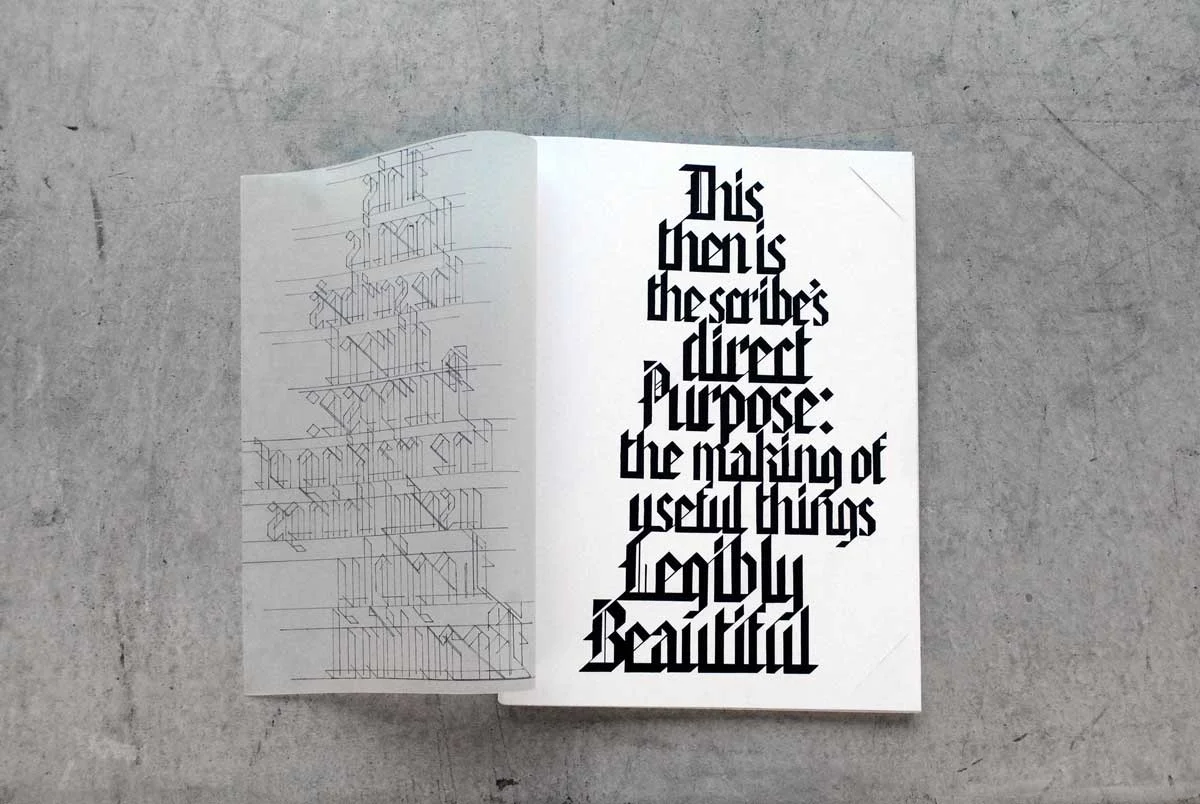 This
then is
the scribe's
direct
Purpose:
the making of
useful things
Legibly
Beautiful